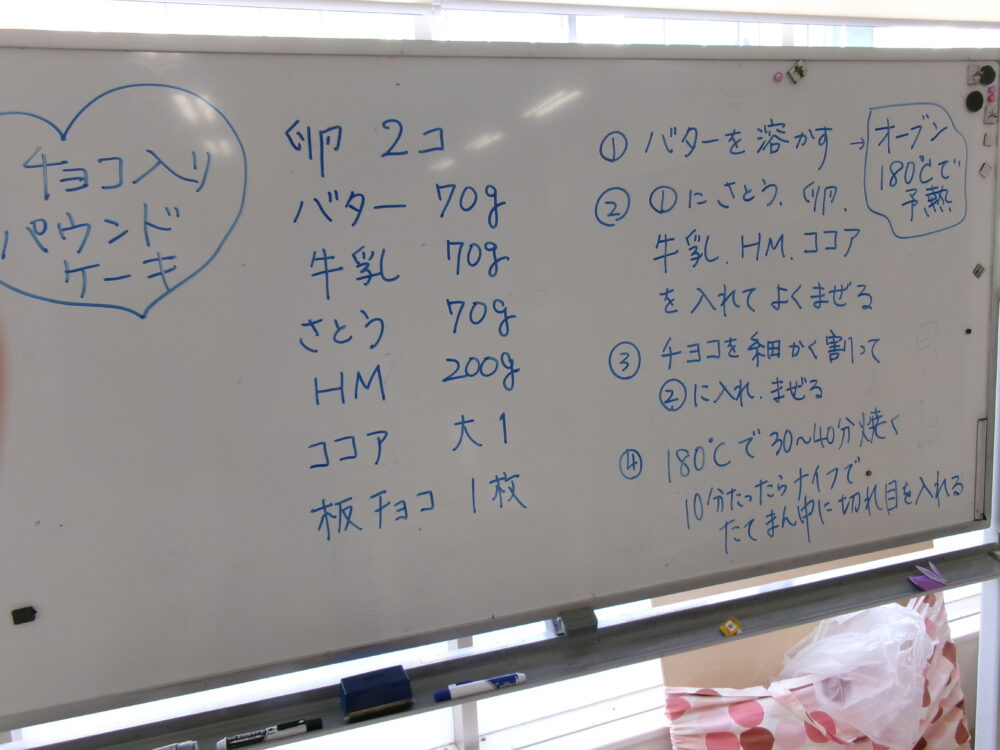 チョコ入り
パウンド
ケーキ
卵 2コ
バター 70g
牛乳 70g
さとう 70g
HM 200g
ココア 大1
板チョコ 1枚
① バターを溶かす →
オーブン
180℃で
予熱
② ①にさとう、卵、
牛乳、HM、ココア
を入れてよくまぜる
③ チョコを細かく割って
②に入れ、まぜる
④ 180℃で30〜40分焼く
10分たったらナイフで
たてまん中に切れ目を入れる